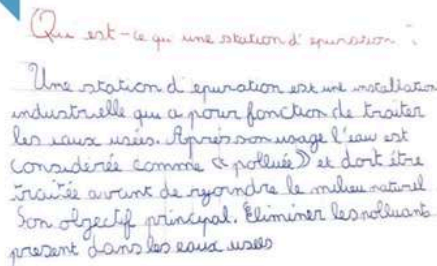 Qu est-ce qu une station d'epuration :
Une station d'epuration est une installation
industrielle qui a pour fonction de traiter
les eaux usées. Après son usage l'eau est
considérée comme « polluée » et doit être
traitée avant de rejoindre le milieu naturel
Son objectif principal. Eliminer les polluants
present dans les eaux usées